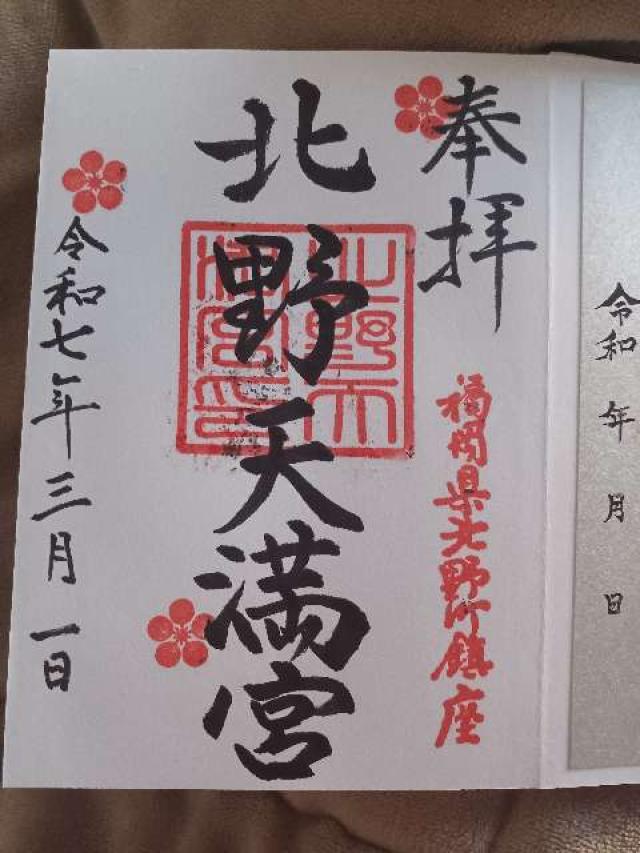 奉拝
福岡県北野町鎮座
北野天満宮
北野天満宮印
令和七年三月一日
令和 年 月 日